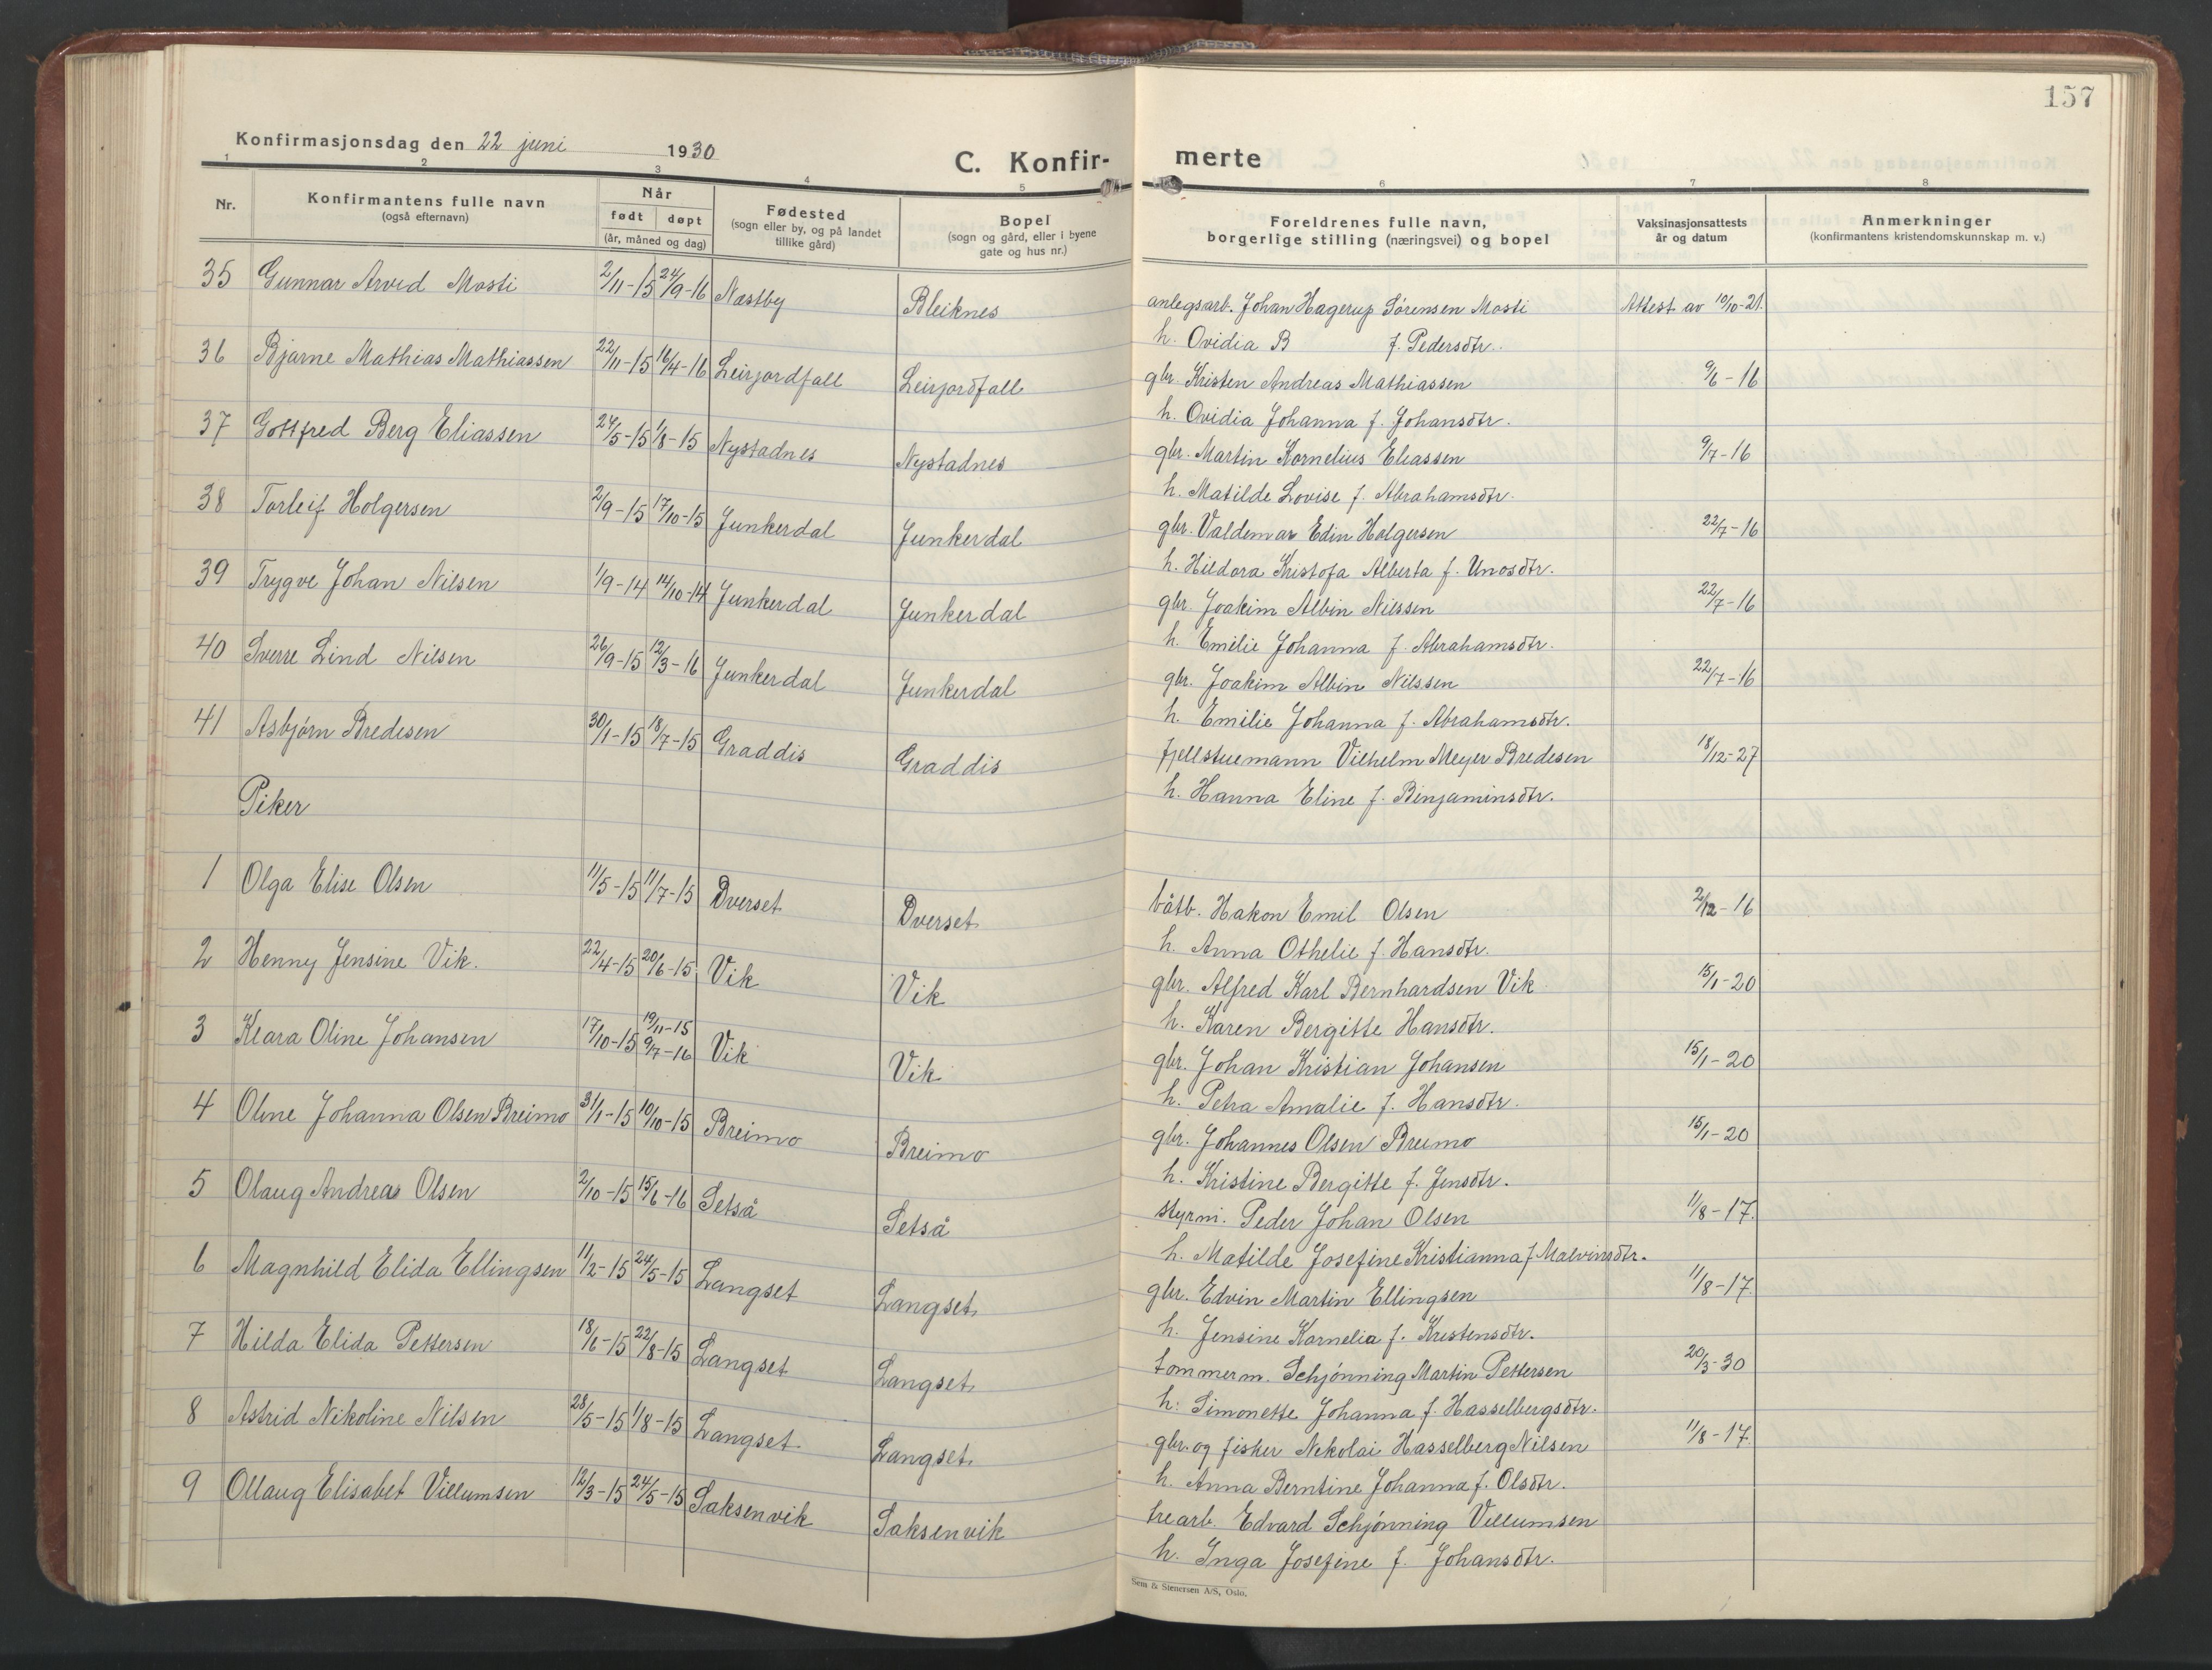 157
Konfirmasjonsdag den 22 juni 1930
C. Konfirmerte
1 2 3 4 5 6 7 8
Nr. | Konfirmantens fulle navn (også efternavn) | Når født | døpt (år, måned og dag) | Fødested (sogn eller by, og på landet tillike gård) | Bopel (sogn og gård, eller i byene gate og hus nr.) | Foreldrenes fulle navn, borgerlige stilling (næringsvei) og bopel | Vaksinasjonsattests år og datum | Anmerkninger (konfirmantens kristendomskunnskap m. v.)
35 Gunnar Arvid Mosti 2/11-15 24/9-16 Næstby Bleiknes anlegsarb. Johan Hagerup Sørensen Mosti Attest av 10/10-21.
h. Ovidia B f. Pedersdtr.
36 Bjarne Mathias Mathiassen 22/11-15 16/4-16 Leirjordfall Leirjordfall gbr. Kristen Andreas Mathiassen 9/6-16
h. Ovidia Johanna f. Johansdtr.
37 Gottfred Berg Eliassen 24/5-15 1/8-15 Nystadnes Nystadnes gbr. Martin Kornelius Eliassen 9/7-16
h. Matilde Lovise f. Abrahamsdtr.
38 Torleif Holgersen 2/9-15 17/10-15 Junkerdal Junkerdal gbr. Valdemar Edin Holgersen 22/7-16
h. Hildora Kristofa Alberta f. Unosdtr.
39 Trygve Johan Nilsen 1/9-14 14/10-14 Junkerdal Junkerdal gbr. Joakim Albin Nilssen 22/7-16
h. Emelie Johanna f. Abrahamsdtr.
40 Sverre Lind Nilsen 26/9-15 12/3-16 Junkerdal Junkerdal gbr. Joakim Albin Nilssen 22/7-16
h. Emilie Johanna f. Abrahamsdtr.
41 Asbjørn Bredesen 30/1-15 18/7-15 Graddis Graddis fjellstuemann Vilhelm Meyer Bredesen 18/12-27
h. Hanna Eline f. Binjaminsdtr.
Piker
1 Olga Elise Olsen 11/5-15 11/7-15 Dverset Dverset båtb. Hakon Emil Olsen 2/12-16
h. Anna Othelie f. Hansdtr.
2 Henny Jensine Vik. 22/4-15 20/6-15 Vik Vik gbr. Alfred Karl Bernhardsen Vik 15/1-20
h. Karen Bergitte Hansdtr.
3 Klara Oline Johansen 17/10-15 19/11-15 9/7-16 Vik Vik gbr. Johan Kristian Johansen 15/1-20
h. Petra Amalie f. Hansdtr.
4 Oline Johanna Olsen Breimo 31/1-15 10/10-15 Breimo Breimo gbr. Johannes Olsen Breimo 15/1-20
h. Kristine Bergitte f. Jensdtr.
5 Olaug Andrea Olsen 2/10-15 15/6-16 Setså Setså styrm. Peder Johan Olsen 11/8-17.
h. Matilde Josefine Kristianna f Malvinsdtr.
6 Magnhild Elida Ellingsen 11/2-15 24/5-15 Langset Langset gbr. Edvin Martin Ellingsen 11/8-17.
h. Jensine Kornelia f. Kristensdtr.
7 Hilda Elida Pettersen 18/6-15 22/8-15 Langset Langset tommerm. Schjønning Martin Pettersen 20/3-30
h. Simonette Johanna f. Hasselbergsdtr.
8 Astrid Nikoline Nilsen 28/5-15 1/8-15 Langset Langset gbr. og fisker Nikolai Hasselberg Nilsen 11/8-17.
h. Anna Berntine Johanna f. Olsdtr.
9 Ollaug Elisabet Villumsen 12/3-15 24/5-15 Saksenvik Saksenvik trearb. Edvard Schjønning Villumsen
h. Inga Josefine f. Johansdtr.
Sem & Stenersen A/S, Oslo.